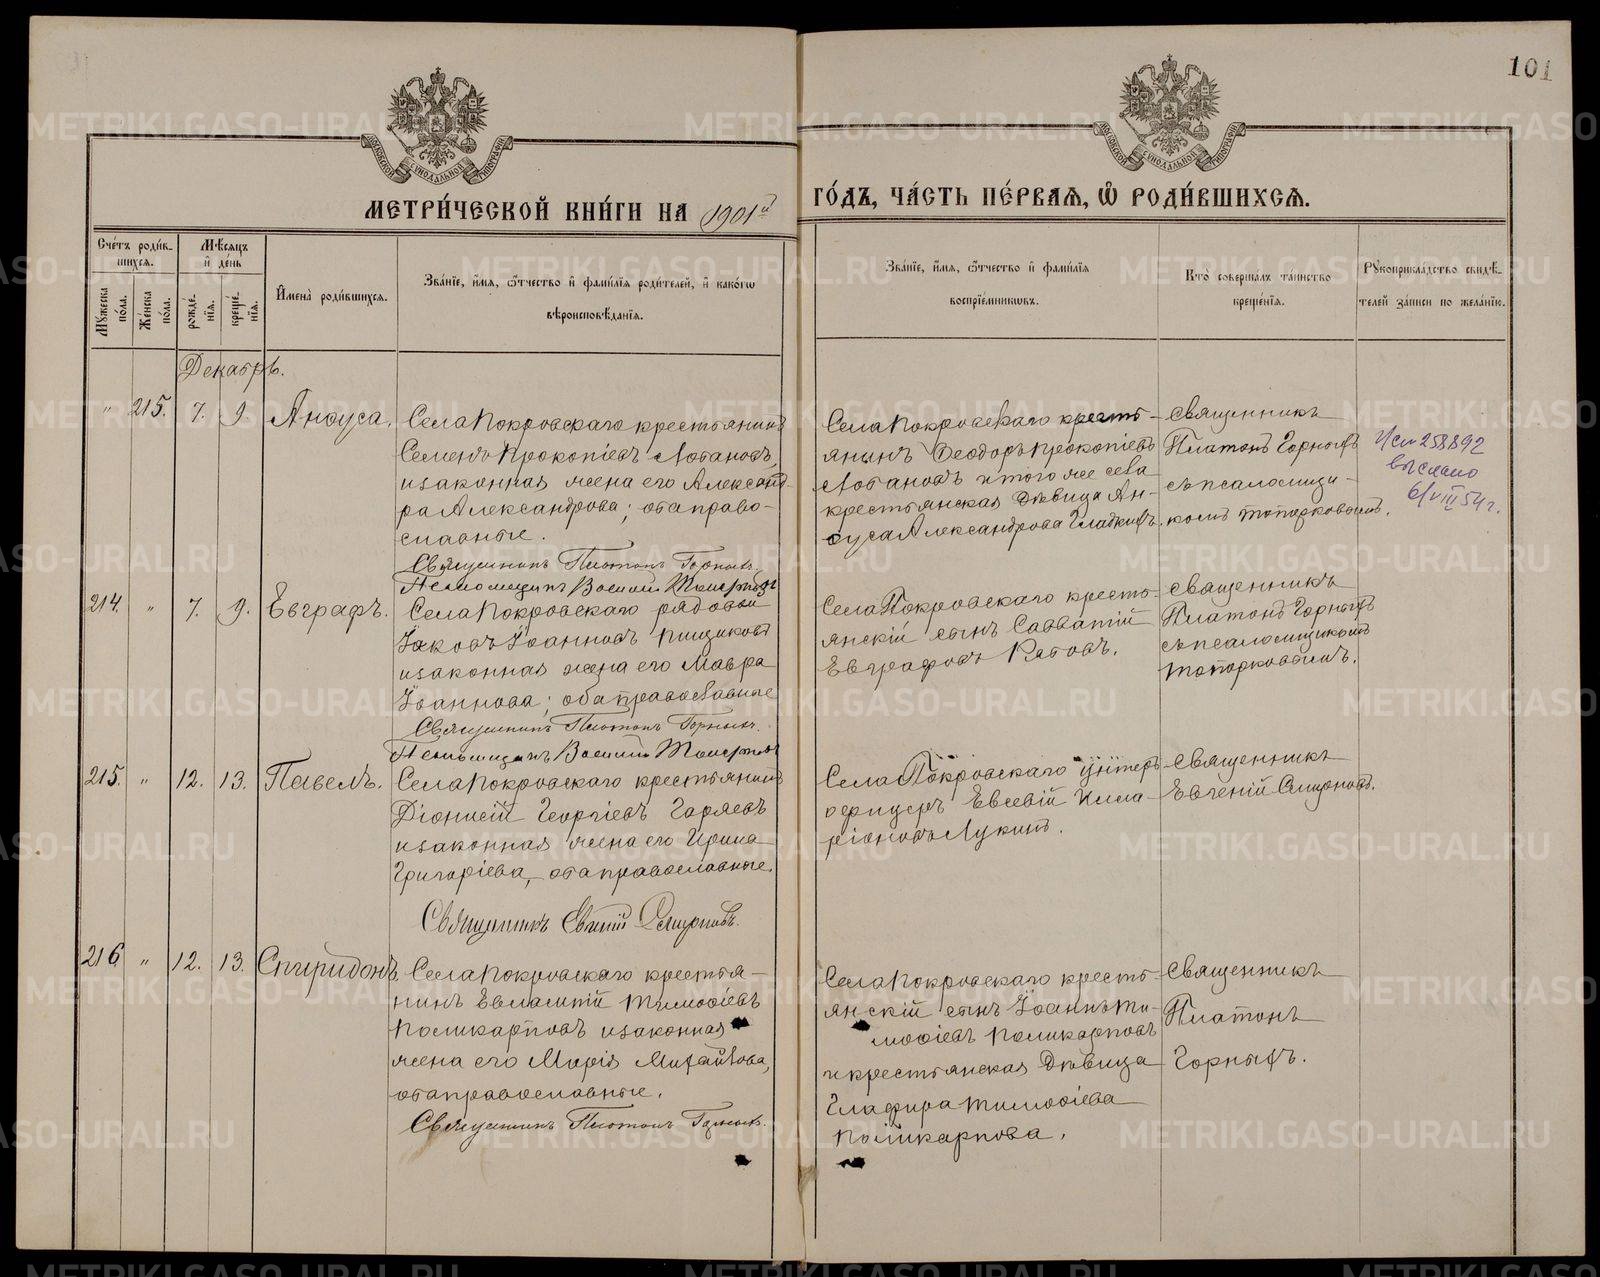 101
МЕТРИ́ЧЕСКОЙ КНИ́ГИ НА 1901й ГО́ДЪ, ЧА́СТЬ ПЕ́РВАЯ, Ѿ РОДИ́ВШИХСЯ.
Сче́тъ роди́в-
шихся.
Мꙋжеска по́ла.
Же́нска по́ла.
Мѣ́сяцъ
и҆ де́нь
рожде́-
нїя.
креще́-
нїя.
И҆мена̀ роди́вшихся.
Зва́нїе, и҆́мя, ѻ҆́тчество и҆ фамѝлїя роди́телей, и҆ како́гѡ
вѣроисповѣ́данїя.
Зва́нїе, и҆́мя, ѻ҆́тчество и҆ фамѝлїя
воспрїе́мникѡвъ.
Кто̀ соверша́лъ та́инство
креще́нїя.
Рꙋкоприкла́дство свидѣ́-
телей за́писи по жела́нїю.
Декабрь.
" 215. 7. 9. Анфуса.
Села Покровскаго крестьянинъ
Семенъ Прокопіевъ Лобановъ
и законная жена его Александ-
ра Александрова; оба право-
славные.
Священникъ Платонъ Горныхъ.
Псаломщикъ
Села Покровскаго кресть-
янинъ Ѳеодоръ Прокопіевъ
Лобановъ и того же села
крестьянская дѣвица Ан-
фуса Александрова Гладкихъ.
Священникъ
Платонъ Горныхъ
съ псаломщи-
комъ Топорковымъ.
Исп 258892
выслано
6/VIII 54 г.
214. " 7. 9. Евграфъ.
Села Покровскаго рядовой
Іаковъ Іоанновъ Пищиковъ
и законная жена его Мавра
Іоаннова; оба православные
Священникъ Платонъ Горныхъ.
Псаломщикъ
Села Покровскаго кресть-
янскій сынъ Савватій
Евграфовъ Рябовъ.
Священникъ
Платонъ Горныхъ
съ псаломщикомъ
Топорковымъ.
215. " 12. 13. Павелъ.
Села Покровскаго крестьянинъ
Діонисій Георгіевъ Горяевъ
и законная жена его Ирина
Григоріева, оба православные.
Священникъ Евгеній Смирновъ.
Села Покровскаго унтеръ-
офицеръ Евсевій Ила-
ріоновъ Лукинъ.
Священникъ
Евгеній Смирновъ.
216 " 12. 13. Спиридонъ
Села Покровскаго крестья-
нинъ Евлампій Тимоѳіевъ
Поликарповъ и законная
жена его Марія Михайлова,
оба православные.
Священникъ Платонъ Горныхъ.
Села Покровскаго кресть-
янскій сынъ Іоаннъ Ти-
моѳіевъ Поликарповъ
и крестьянская дѣвица
Глафира Тимоѳіева
Поликарпова.
Священникъ
Платонъ
Горныхъ.
METRIKI.GASO-URAL.RU